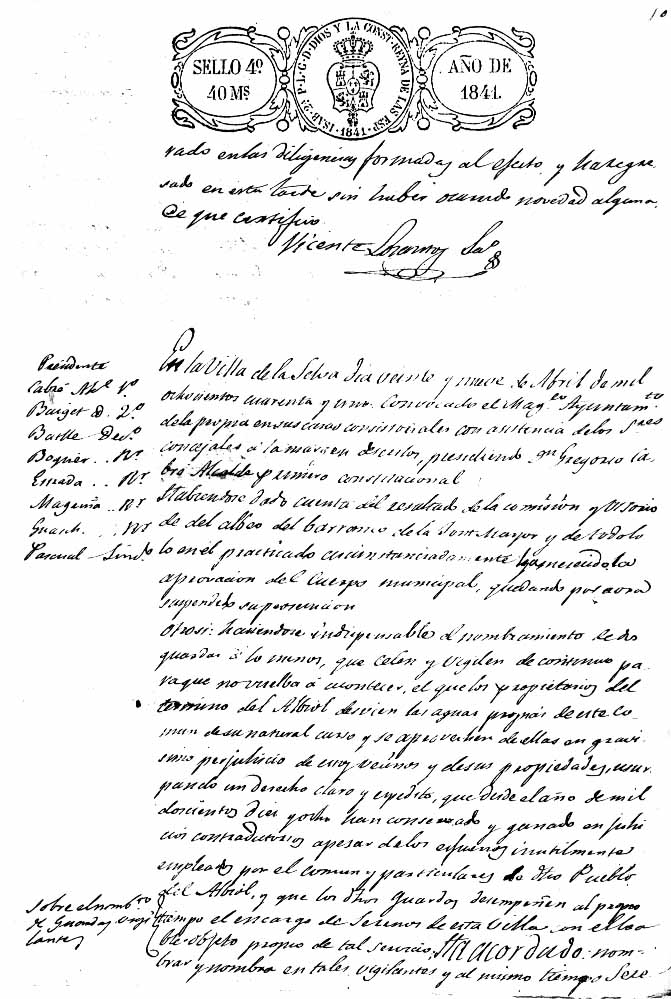 10
SELLO 4º
40 Mˢ
ISAB. 2ª P. L. G. D. DIOS Y LA CONST. REYNA DE LAS ESP.
1841.
AÑO DE
1841.
vado en las diligencias formadas al efecto y ha regre
sado en esta tarde sin haber ocurrido novedad alguna.
De que certifico.
Vicente Sºº
En la Villa de la Selva dia veinte y nueve de Abril de mil
ochocientos cuarenta y uno. Convocado el Magᶜᵒ Ayuntamᵗᵒ
de la propia en sus casas consistoriales con asistencia de los Sʳᵉˢ
concejales á la margen descritos, presidiendo Gregorio Ca
bré Alcalde primero constitucional
Habiendose dado cuenta del resultado de la comision
de del albeo del barranco de la Font Mayor y de todo lo
lo en él practicado circunstanciadamente la
aprovacion del Cuerpo municipal, quedando por aora
suspendido su prosecucion
Otrosi: haciendose indispensable el nombramiento de dos
guardas á lo menos, que celen y vigilen de continuo pa
ra que no vuelba á acontecer, el que los propietarios del
termino del Albiol desvien las aguas propias de este Co
mun de su natural curso y se aprovechen de ellas en gravi
simo perjuhicio de estos vecinos y de sus propiedades, usur
pando un derecho claro y espedito, que desde el año de mil
doscientos diez y ocho han conservado y ganado en juhi
cios contradictorios apesar de los esfuerzos inutilmente
empleados por el comun y particulares de dho Pueblo
del Albiol, y que los dhos Guardas desempeñen al propio
tiempo el encargo de Serenos de esta Villa, en el loa
ble objeto propio de tal servicio: Ha acordado: nom
brar y nombra en tales vigilantes y al mismo tiempo Sere
Presidente
Cabré Alᵉ 1º
Barget d. 2º
Batlle Decº
Boquer .. Rʳ
Estrada .. Rʳ
Magriña .. Rʳ
Guasch .. Rʳ
Pascual Sindº
Sobre el nombᵗᵒ
de Guardas vigi
lantes